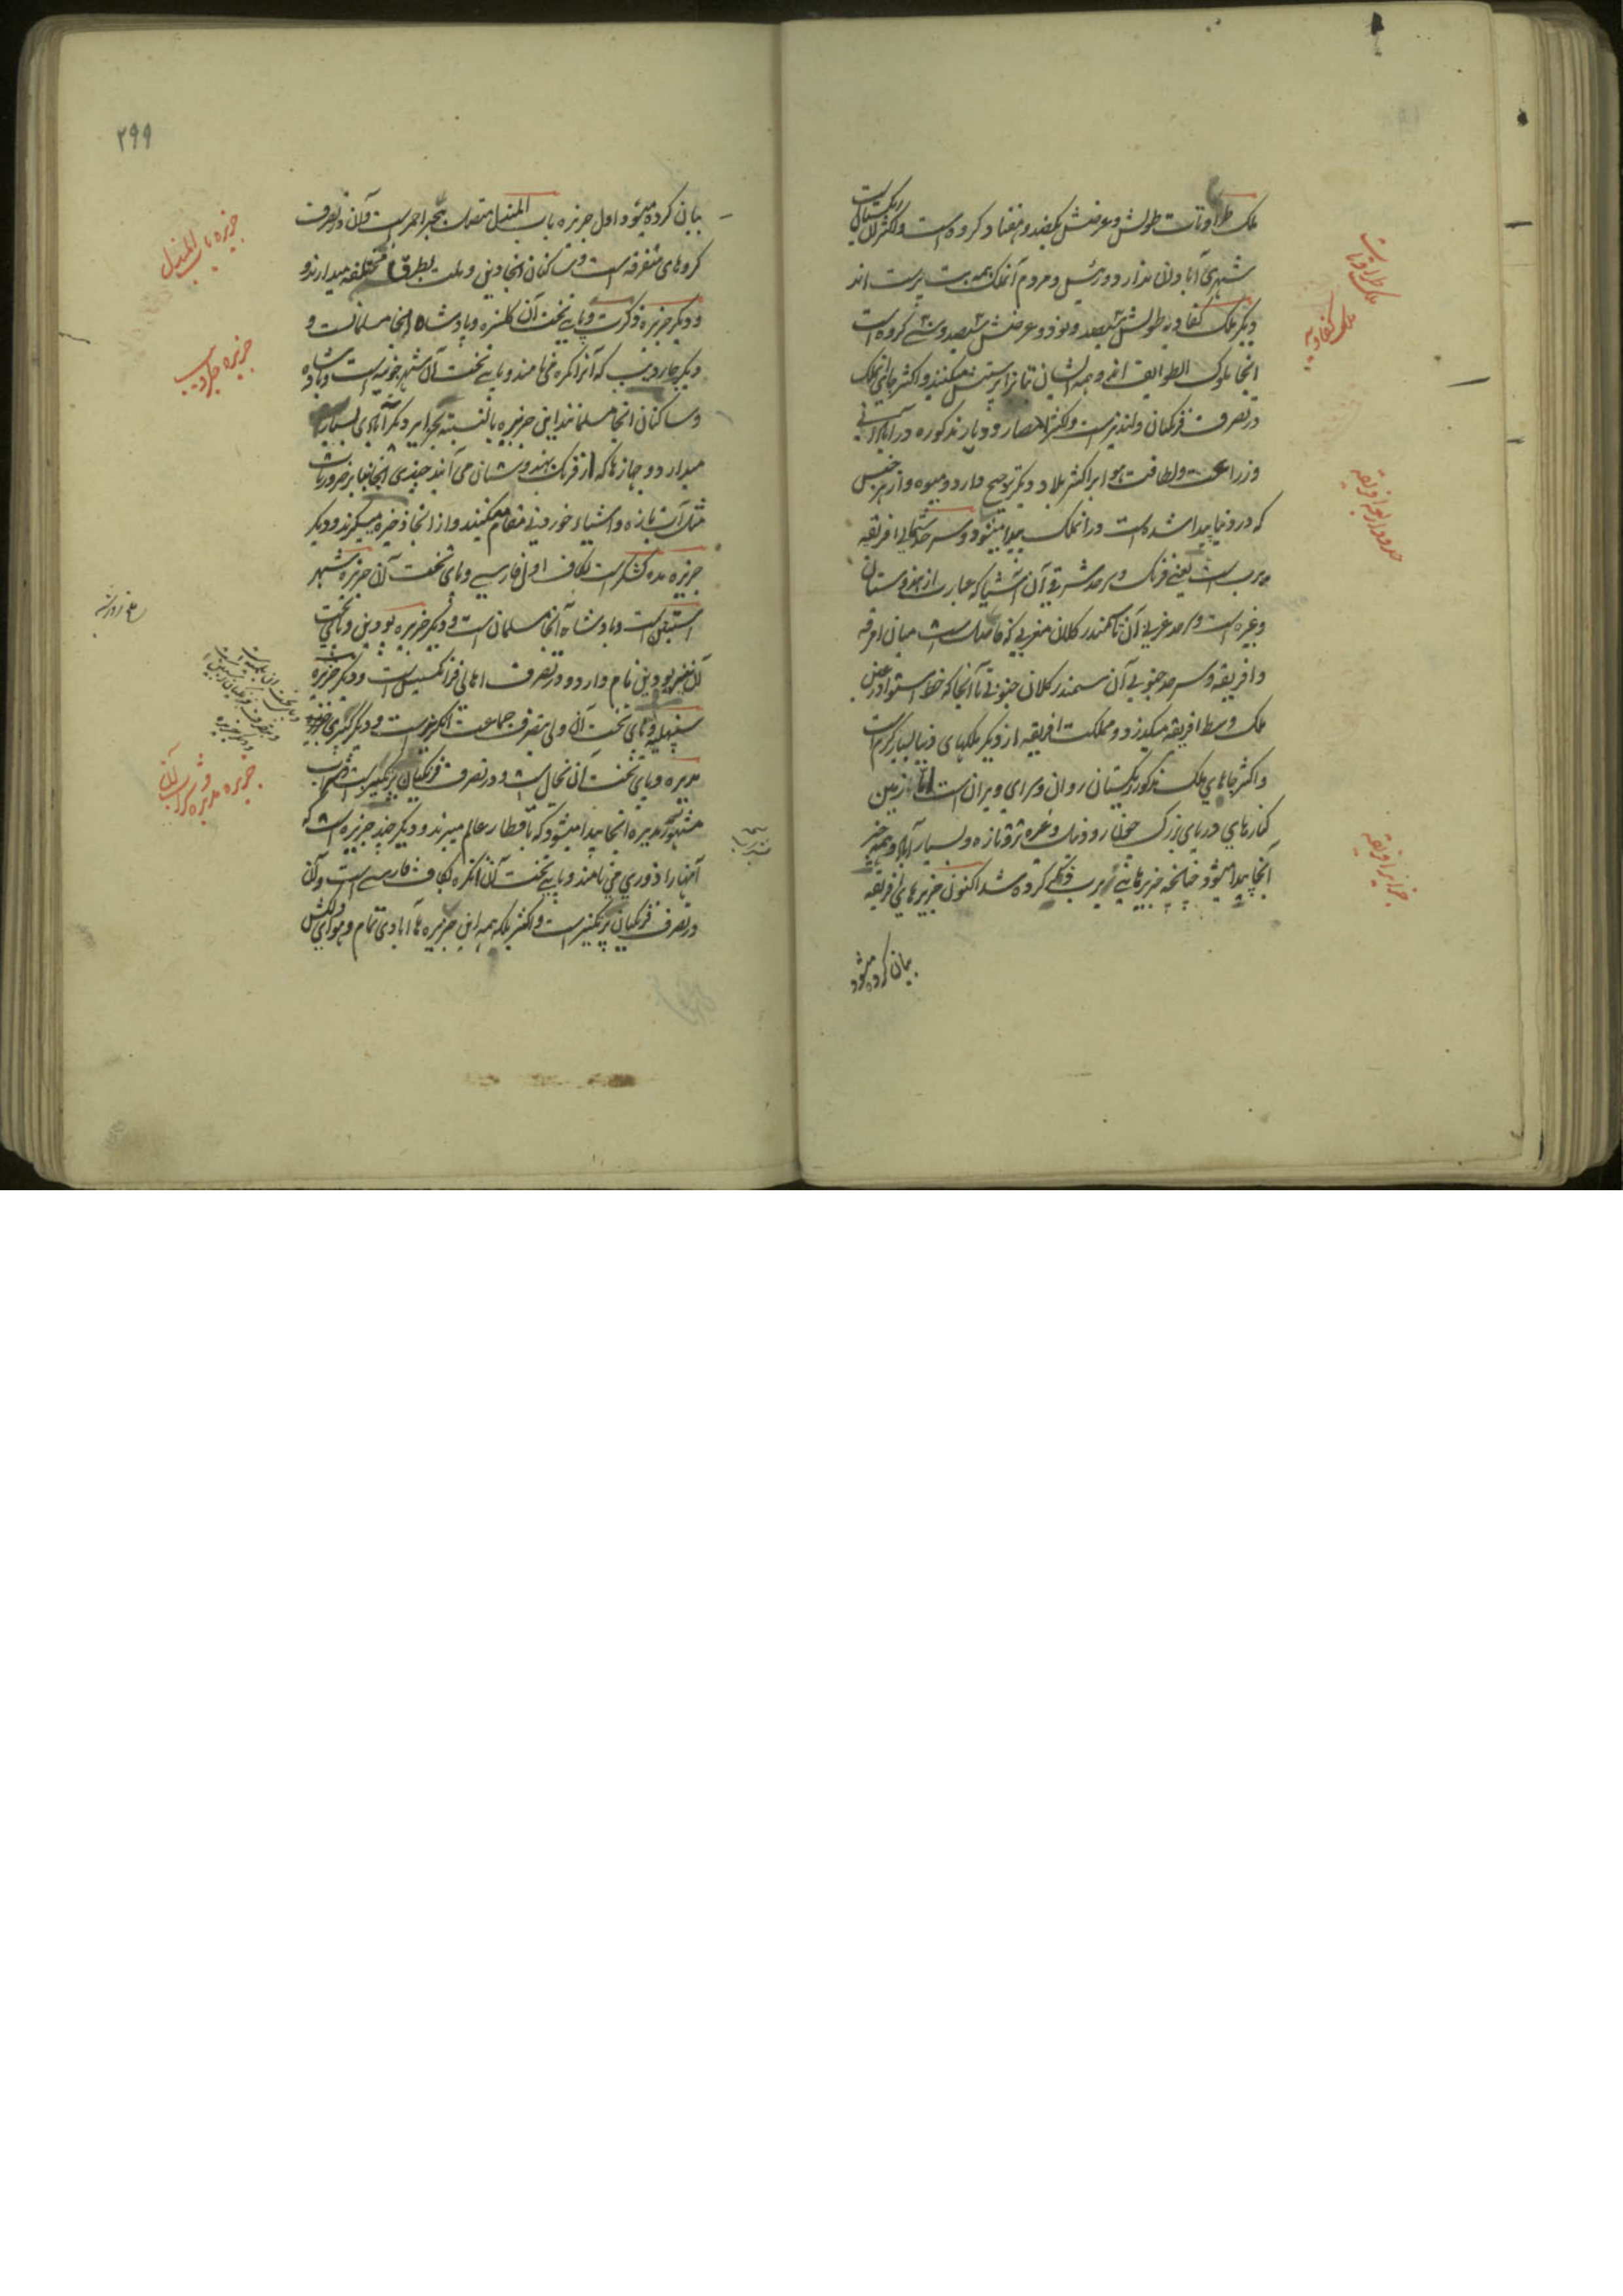 ملک طراوتات طولش و عرضش یکصد و هفتاد کروه است و اکثر آن ریگستان است
شهری آبادان ندارد و رئیس و مردم آنملک همه بت پرست اند
دیگر ملک کفادیه طولش سیصد و نود و عرضش سیصد و سی کروه است
آنجا ملوک الطوایف اند و همه ایشان بتانرا پرستش میکنند و اکثر جای آنملک
در تصرف فرنگیان ولندیز است و اکثر امصار و دیار مذکوره در آبادانی
و زراعت و لطافت هوا بر اکثر بلاد دیگر ترجیح دارد و میوه و از هر جنس
که در دنیا پیدا شده است در آنملک پیدا میشود و سرحد شمالی افریقه
یورب است یعنی فرنگ و سرحد شرقی آن آشیا که عبارت از هندوستان
وغیره است و سرحد غربی آن تا سمندر کلان مغربی که فاصل است میان امرقه
و افریقه و سرحد جنوبی آن سمندر کلان جنوبی تا آنجا که خط استوا در عرض
ملک وسط افریقه میگذرد و مملکت افریقه از دیگر ملکهای دنیا بسیار گرم است
و اکثر جاهای ملک مذکور ریگستان روان و سرای ویران است اما زمین
کنارهای دریای بزرگ چون رود نیل وغیره تر و تازه و بسیار آباد و همه چیز
آنجا پیدا میشود چنانچه جزیرهای یورب ذکر کرده شد اکنون جزیرهای افریقه
بیان کرده میشود
ملک طراوتات
ملک کفادیه
حدود اربعه افریقه
جزایر افریقه
۲۹۹
بیان کرده میشود اول جزیره باب المندل متصل بحر احمر است و آن در تصرف
کروهای متفرقه است و ساکنان آنجا دین و ملت بطرق مختلفه میدارند و
و دیگر جزیره ذکرت و پای تخت آن کلنسره و پادشاه آنجا مسلمانست و
دیگر جاردیب که آنرا نکره می نامند و پای تخت آن شهر خونیه است و پادشاه
و ساکنان آنجا مسلمانند این جزیره بالنسبت بجزایر دیگر آبادی بسیار
میدارد و جهازها که از فرنگ بهندوستان می آیند چندی آنجا بنا بر ضروریات
مثل آب تازه و اشیاء خوردنی مقام میکنند و از آنجا ذخیره میگیرند و دیگر
جزیره مده کشکر است بکاف اول فارسی و پای تخت آن جزیره شهر
است و پادشاه آنجا مسلمان است و دیگر جزیره بودین و پای تخت
آن نیز بودین نام دارد و در تصرف اهالی فرانسیس است و دیگر جزیره
سنپلیه و پای تخت آن ولی بتصرف جماعت انگریز است و دیگر
مدیره و پای تخت آن نجال است و در تصرف فرنگیان پرتکیز است و شراب
مشهور مدیره آنجا پیدا میشود که باقطار عالم میبرند و دیگر چند جزیره است که
آنها را ازوری می نامند و پای تخت آن انکره بکاف فارسی است و آن
در تصرف فرنگیان پرتکیز است و اکثر بلکه همه این جزیره ها آبادی تمام و هوای دلکش
جزیره باب المندل
جزیره جاردیب
جزیره مدیره و شراب آن